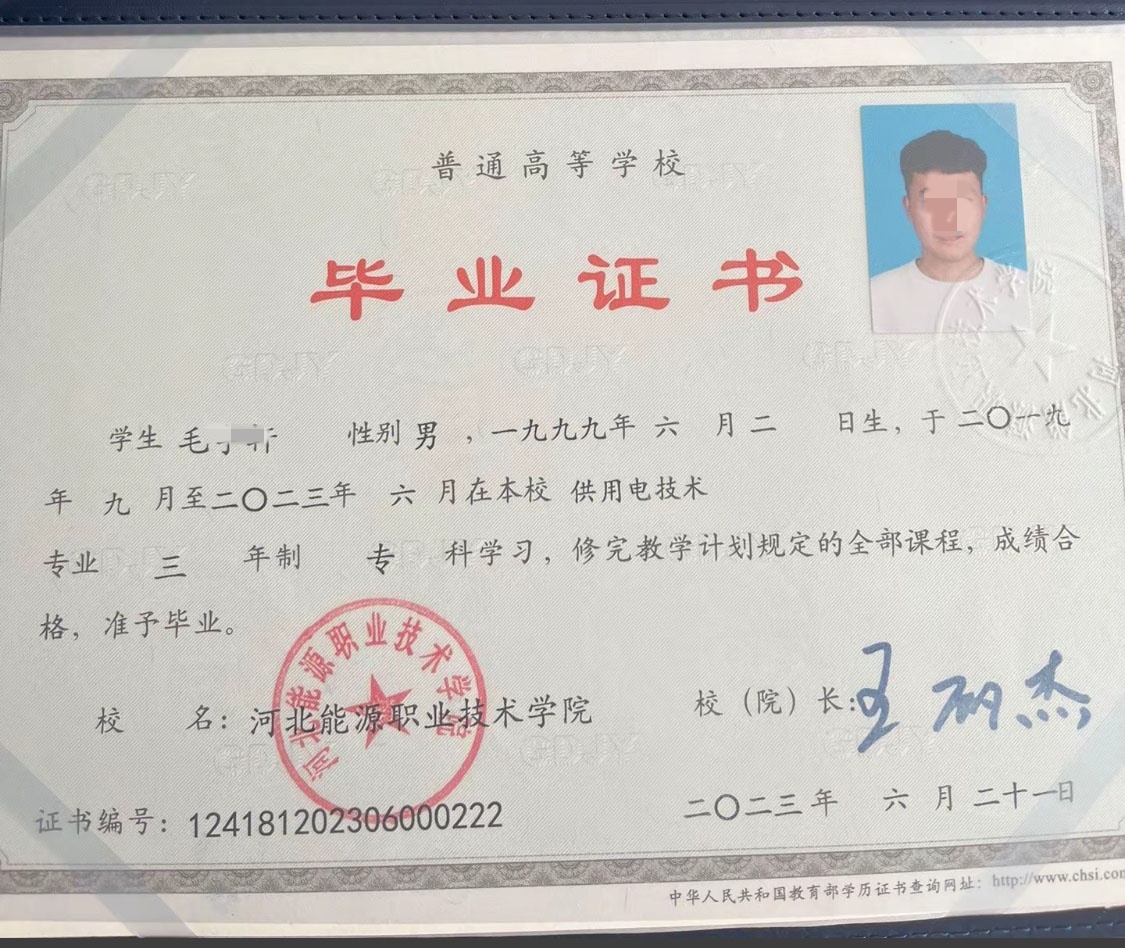 普通高等学校
毕业证书
学生 毛 性别 男 ，一九九九年 六 月 二 日生，于二〇一九
年 九 月至二〇二三年 六 月在本校 供用电技术
专业 三 年制 专 科学习，修完教学计划规定的全部课程，成绩合
格，准予毕业。
河北能源职业技术学院
校 名：河北能源职业技术学院
校（院）长：王硕杰
证书编号：124181202306000222
二〇二三年 六 月 二十一日
中华人民共和国教育部学历证书查询网址：http://www.chsi.com